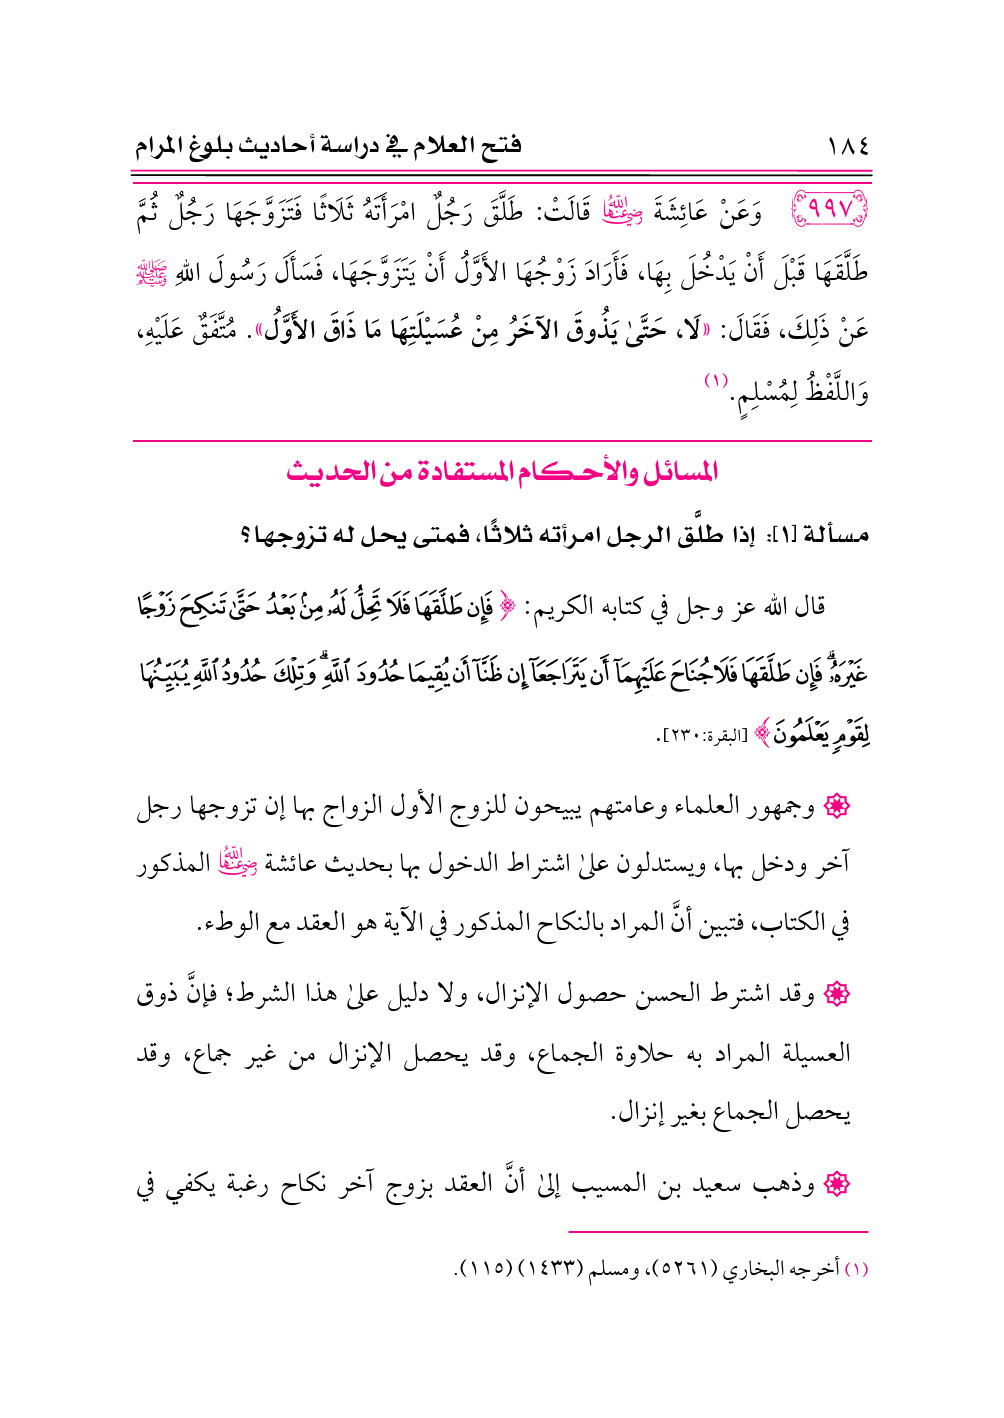 ١٨٤ فتح العلام في دراسة أحاديث بلوغ المرام
٩٩٧ وَعَنْ عَائِشَةَ رضي الله عنها قَالَتْ: طَلَّقَ رَجُلٌ امْرَأَتَهُ ثَلَاثًا فَتَزَوَّجَهَا رَجُلٌ ثُمَّ
طَلَّقَهَا قَبْلَ أَنْ يَدْخُلَ بِهَا، فَأَرَادَ زَوْجُهَا الأَوَّلُ أَنْ يَتَزَوَّجَهَا، فَسَأَلَ رَسُولَ اللهِ ﷺ
عَنْ ذَلِكَ، فَقَالَ: «لَا، حَتَّىٰ يَذُوقَ الآخَرُ مِنْ عُسَيْلَتِهَا مَا ذَاقَ الأَوَّلُ». مُتَّفَقٌ عَلَيْهِ،
وَاللَّفْظُ لِمُسْلِمٍ.(١)
المسائل والأحكام المستفادة من الحديث
مسألة [١]: إذا طلَّق الرجل امرأته ثلاثًا، فمتى يحل له تزوجها؟
قال الله عز وجل في كتابه الكريم: ﴿فَإِن طَلَّقَهَا فَلَا تَحِلُّ لَهُۥ مِنۢ بَعۡدُ حَتَّىٰ تَنكِحَ زَوۡجًا
غَيۡرَهُۥۗ فَإِن طَلَّقَهَا فَلَا جُنَاحَ عَلَيۡهِمَآ أَن يَتَرَاجَعَآ إِن ظَنَّآ أَن يُقِيمَا حُدُودَ ٱللَّهِۗ وَتِلۡكَ حُدُودُ ٱللَّهِ يُبَيِّنُهَا
لِقَوۡمٖ يَعۡلَمُونَ﴾ [البقرة:٢٣٠].
وجمهور العلماء وعامتهم يبيحون للزوج الأول الزواج بها إن تزوجها رجل
آخر ودخل بها، ويستدلون علىٰ اشتراط الدخول بها بحديث عائشة رضي الله عنها المذكور
في الكتاب، فتبين أنَّ المراد بالنكاح المذكور في الآية هو العقد مع الوطء.
وقد اشترط الحسن حصول الإنزال، ولا دليل علىٰ هذا الشرط؛ فإنَّ ذوق
العسيلة المراد به حلاوة الجماع، وقد يحصل الإنزال من غير جماع، وقد
يحصل الجماع بغير إنزال.
وذهب سعيد بن المسيب إلىٰ أنَّ العقد بزوج آخر نكاح رغبة يكفي في
(١) أخرجه البخاري (٥٢٦١)، ومسلم (١٤٣٣) (١١٥).